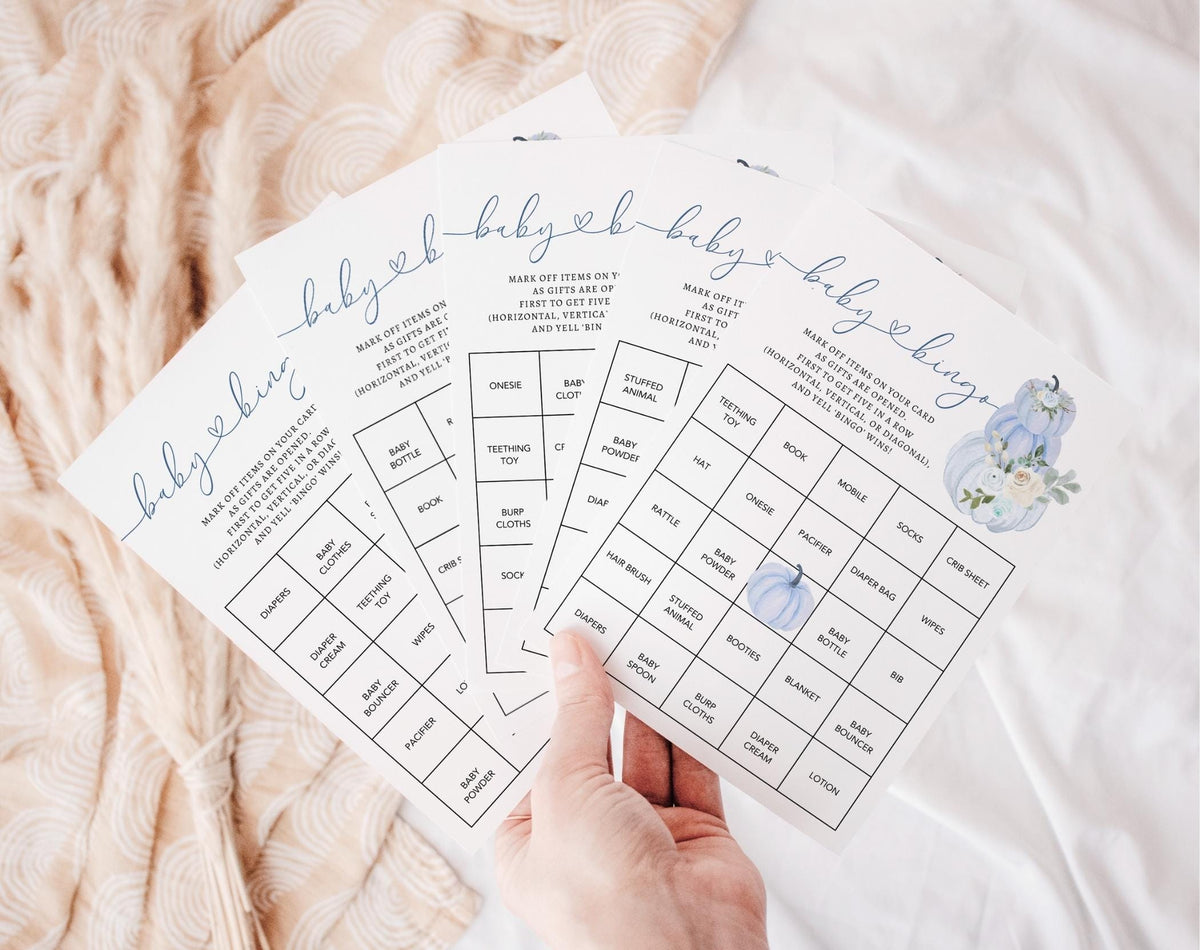 baby bing
MARK OFF ITEMS ON YOUR CARD
AS GIFTS ARE OPENED.
FIRST TO GET FIVE IN A ROW
(HORIZONTAL, VERTICAL, OR DIAG
AND YELL 'BINGO' WINS!
DIAPERS
BABY
CLOTHES
DIAPER
CREAM
TEETHING
TOY
BABY
BOUNCER
WIPES
PACIFIER
LO
BABY
POWDER
baby b
MARK OFF ITEMS ON
AS GIFTS ARE
FIRST TO GET
(HORIZONTAL, VERTI
AND YELL 'B
BABY
BOTTLE
BOOK
CRIB S
baby b
MARK OFF ITEMS ON YO
AS GIFTS ARE OP
FIRST TO GET FIVE
(HORIZONTAL, VERTICA
AND YELL 'BIN
ONESIE
BABY
CLOT
TEETHING
TOY
BURP
CLOTHS
SOCK
baby
MARK OFF IT
AS GIFT
FIRST TO
(HORIZONTAL,
AND Y
STUFFED
ANIMAL
BABY
POWDER
DIAP
baby bingo
MARK OFF ITEMS ON YOUR CARD
AS GIFTS ARE OPENED.
FIRST TO GET FIVE IN A ROW
(HORIZONTAL, VERTICAL, OR DIAGONAL),
AND YELL 'BINGO' WINS!
TEETHING
TOY
BOOK
MOBILE
SOCKS
CRIB SHEET
HAT
ONESIE
PACIFIER
DIAPER BAG
WIPES
RATTLE
BABY
POWDER
BABY
BOTTLE
BIB
HAIR BRUSH
STUFFED
ANIMAL
BOOTIES
BLANKET
BABY
BOUNCER
DIAPERS
BABY
SPOON
BURP
CLOTHS
DIAPER
CREAM
LOTION